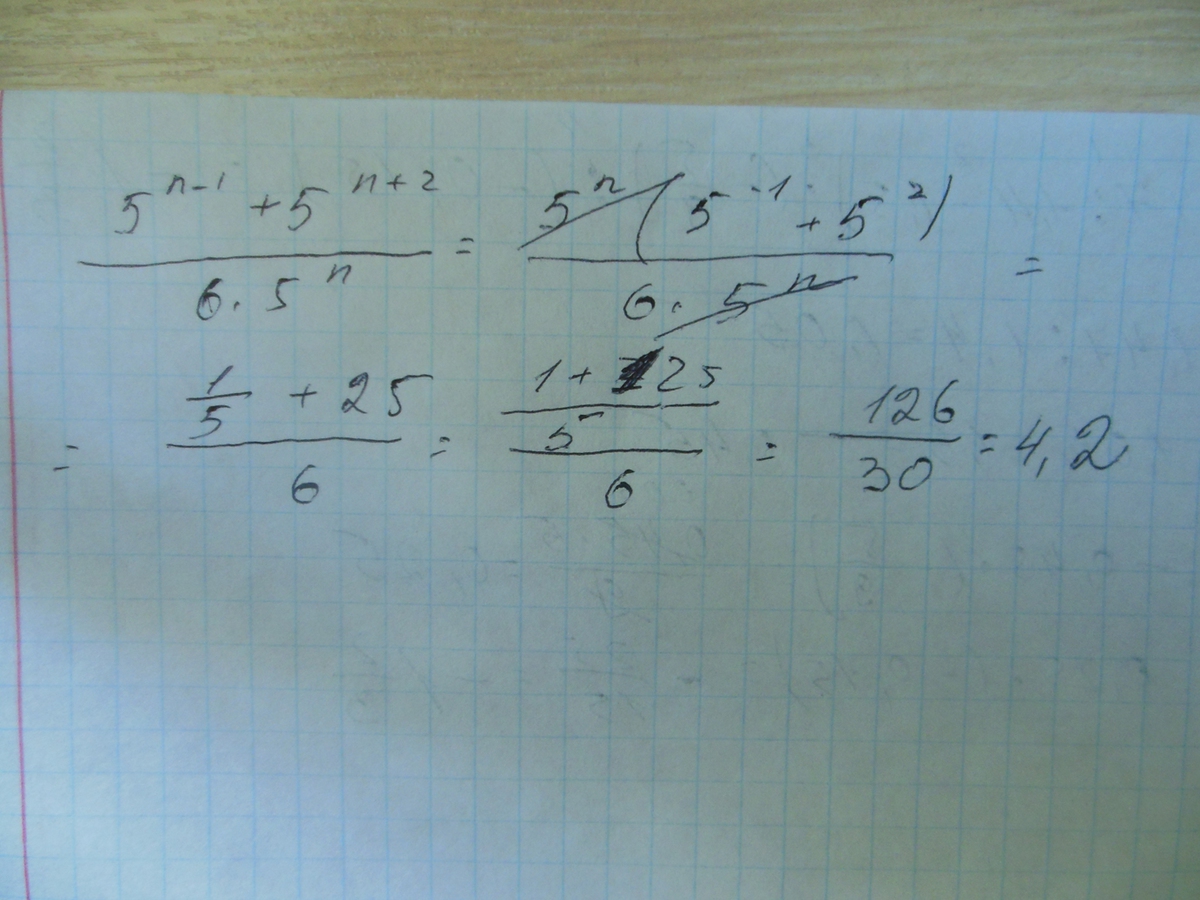 (5^(n-1) + 5^(n+2)) / (6 · 5^n) = 5^n (5^(-1) + 5^2) / (6 · 5^n) =
= (1/5 + 25) / 6 = ((1 + 125) / 5) / 6 = 126/30 = 4,2